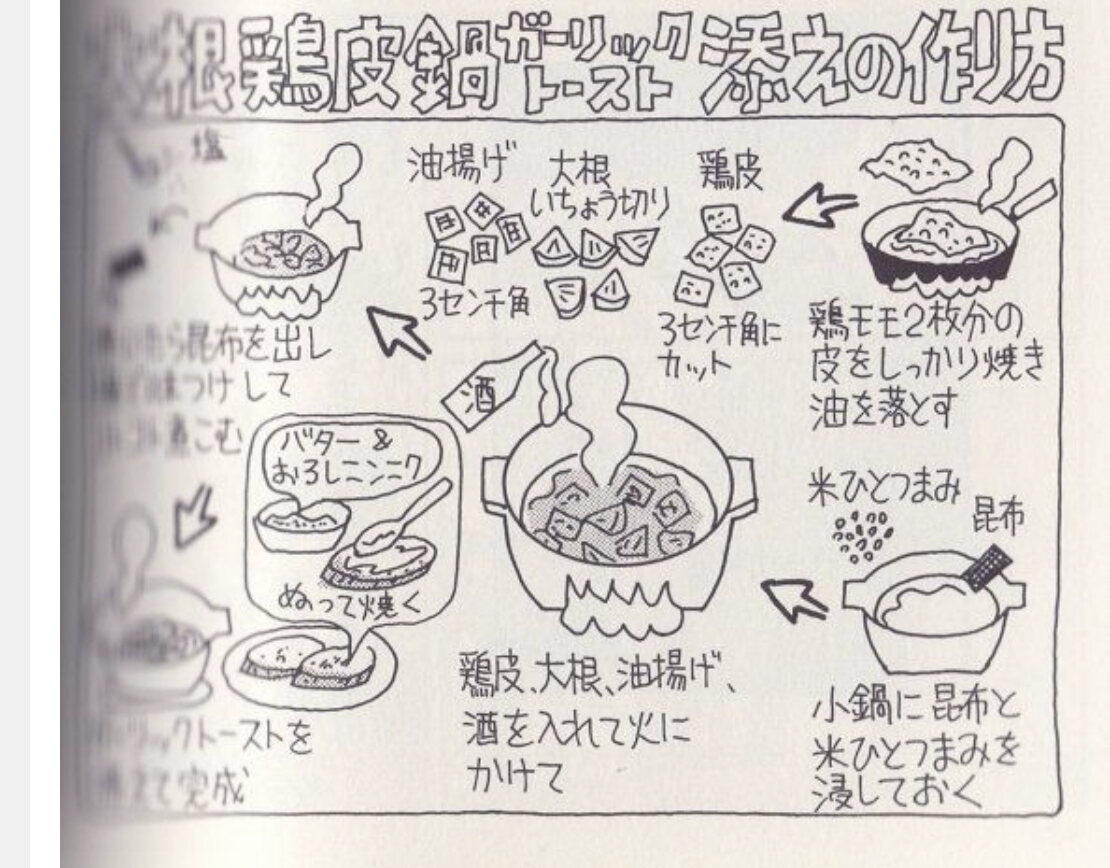 根鶏皮鍋ガーリックトースト添えの作り方
鶏モモ2枚分の
皮をしっかり焼き
油を落とす
鶏皮
3センチ角に
カット
大根
いちょう切り
油揚げ
3センチ角
米ひとつまみ
昆布
小鍋に昆布と
米ひとつまみを
浸しておく
酒
鶏皮、大根、油揚げ、
酒を入れて火に
かけて
塩
たら昆布を出し
味つけして
煮こむ
バター&
おろしニンニク
ぬって焼く
リックトーストを
えて完成